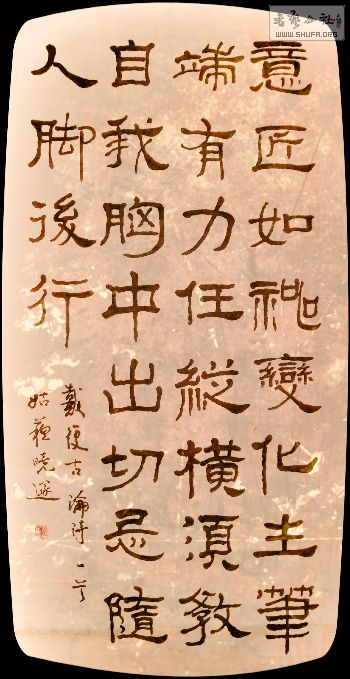 意匠如神變化生筆
端有力任縱橫須教
自我胸中出切忌隨
人脚後行
戴復古論詩一首
姑蘇曉
书艺公社
WWW.SHUFA.ORG